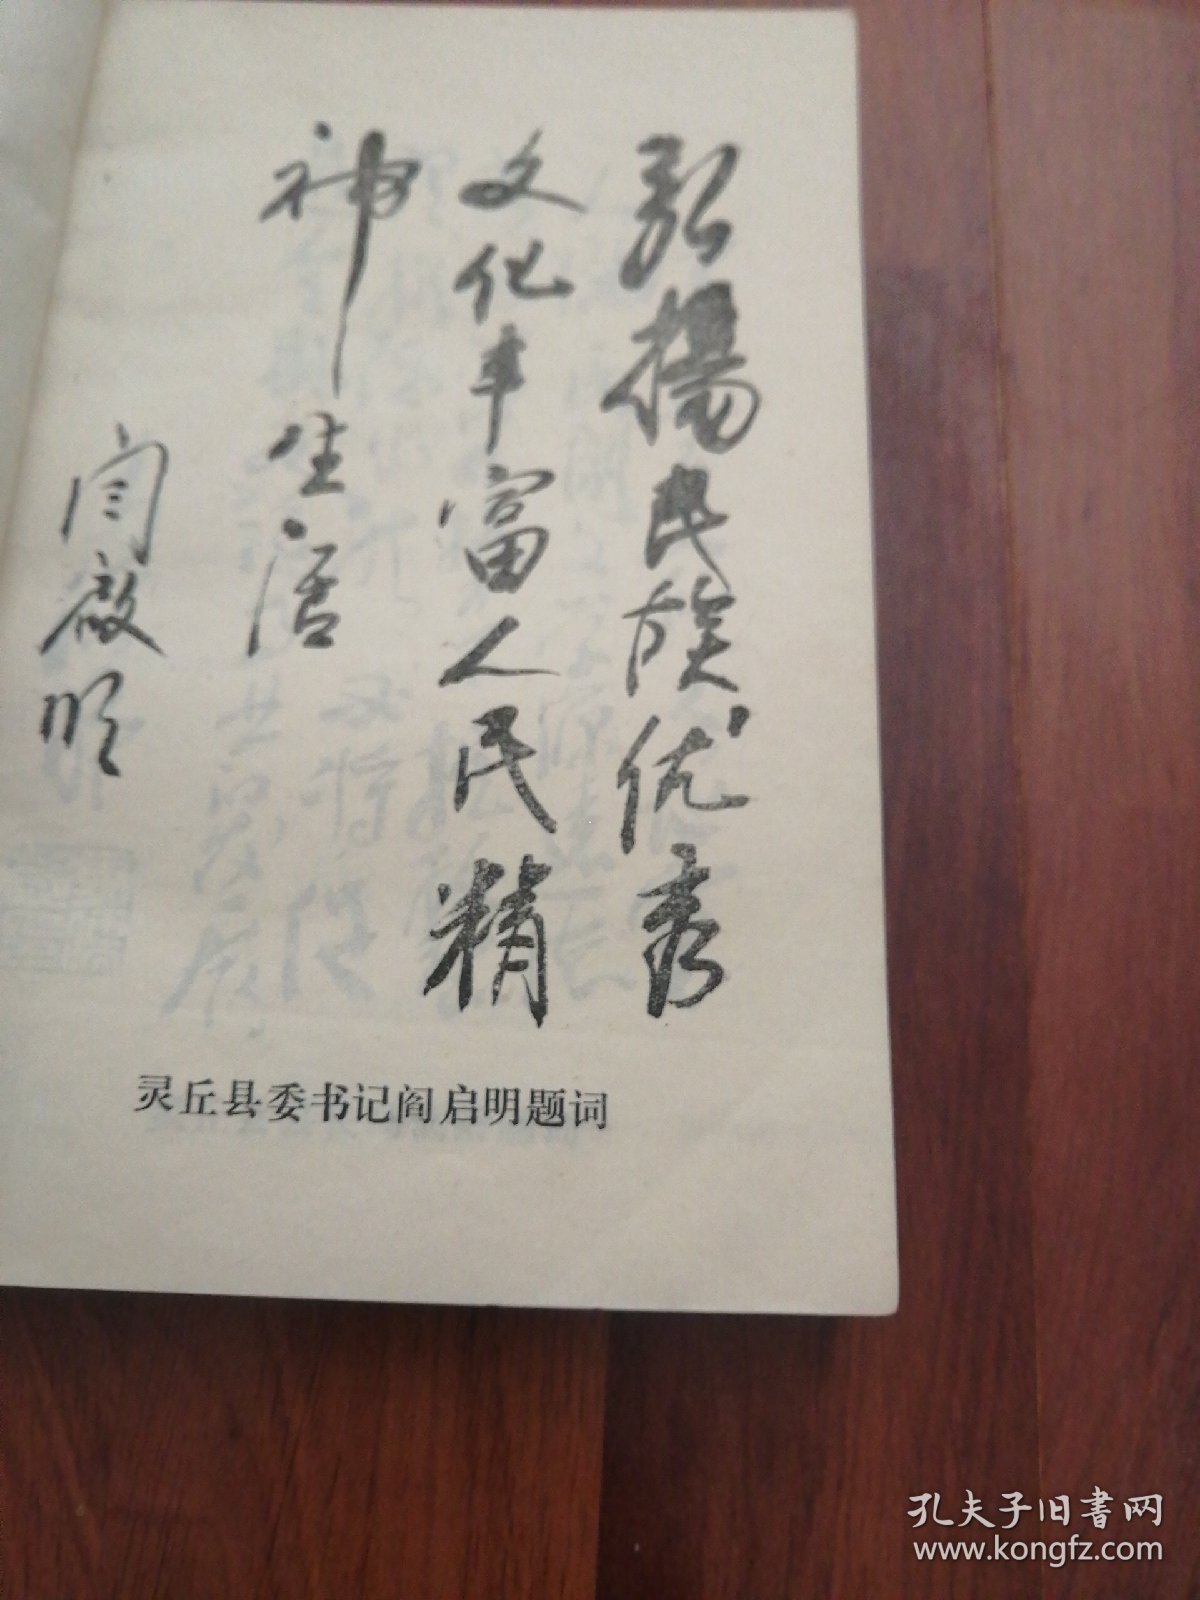 弘揚民族优秀
文化丰富人民精
神生活
闫啟明
灵丘县委书记阎启明题词
孔夫子旧书网
www.kongfz.com